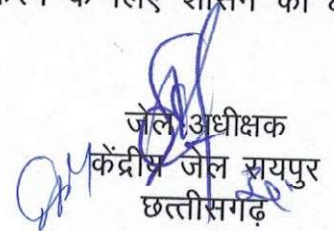 के लिए शासन को
जेल अधीक्षक
केंद्रीय जेल रायपुर
छत्तीसगढ़